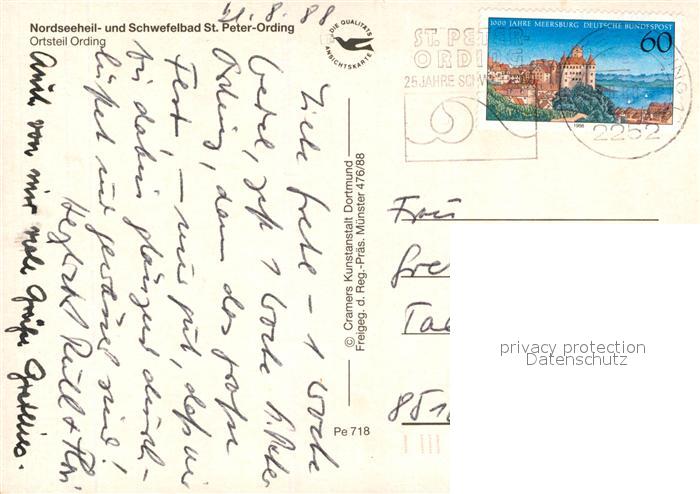 Nordseeheil- und Schwefelbad St. Peter-Ording
Ortsteil Ording
21.8.88
DIE QUALITÄTS
ANSICHTSKARTE
ST. PETER
ORDING
25 JAHRE
1000 JAHRE MEERSBURG DEUTSCHE BUNDESPOST
60
1988
2252
Liebe Grete – 1 Woche
, jetzt 1 Woche St. Peter
Ording, dann das große
Fest, – nur gut, daß wir
bis dahin glänzend durch-
lüftet und gewässert sind!
Herzlichst
Auch von mir viele Grüße
© Cramers Kunstanstalt Dortmund
Freigeg. d. Reg.-Präs. Münster 476/88
Pe 718
Frau
Gre
851
privacy protection
Datenschutz